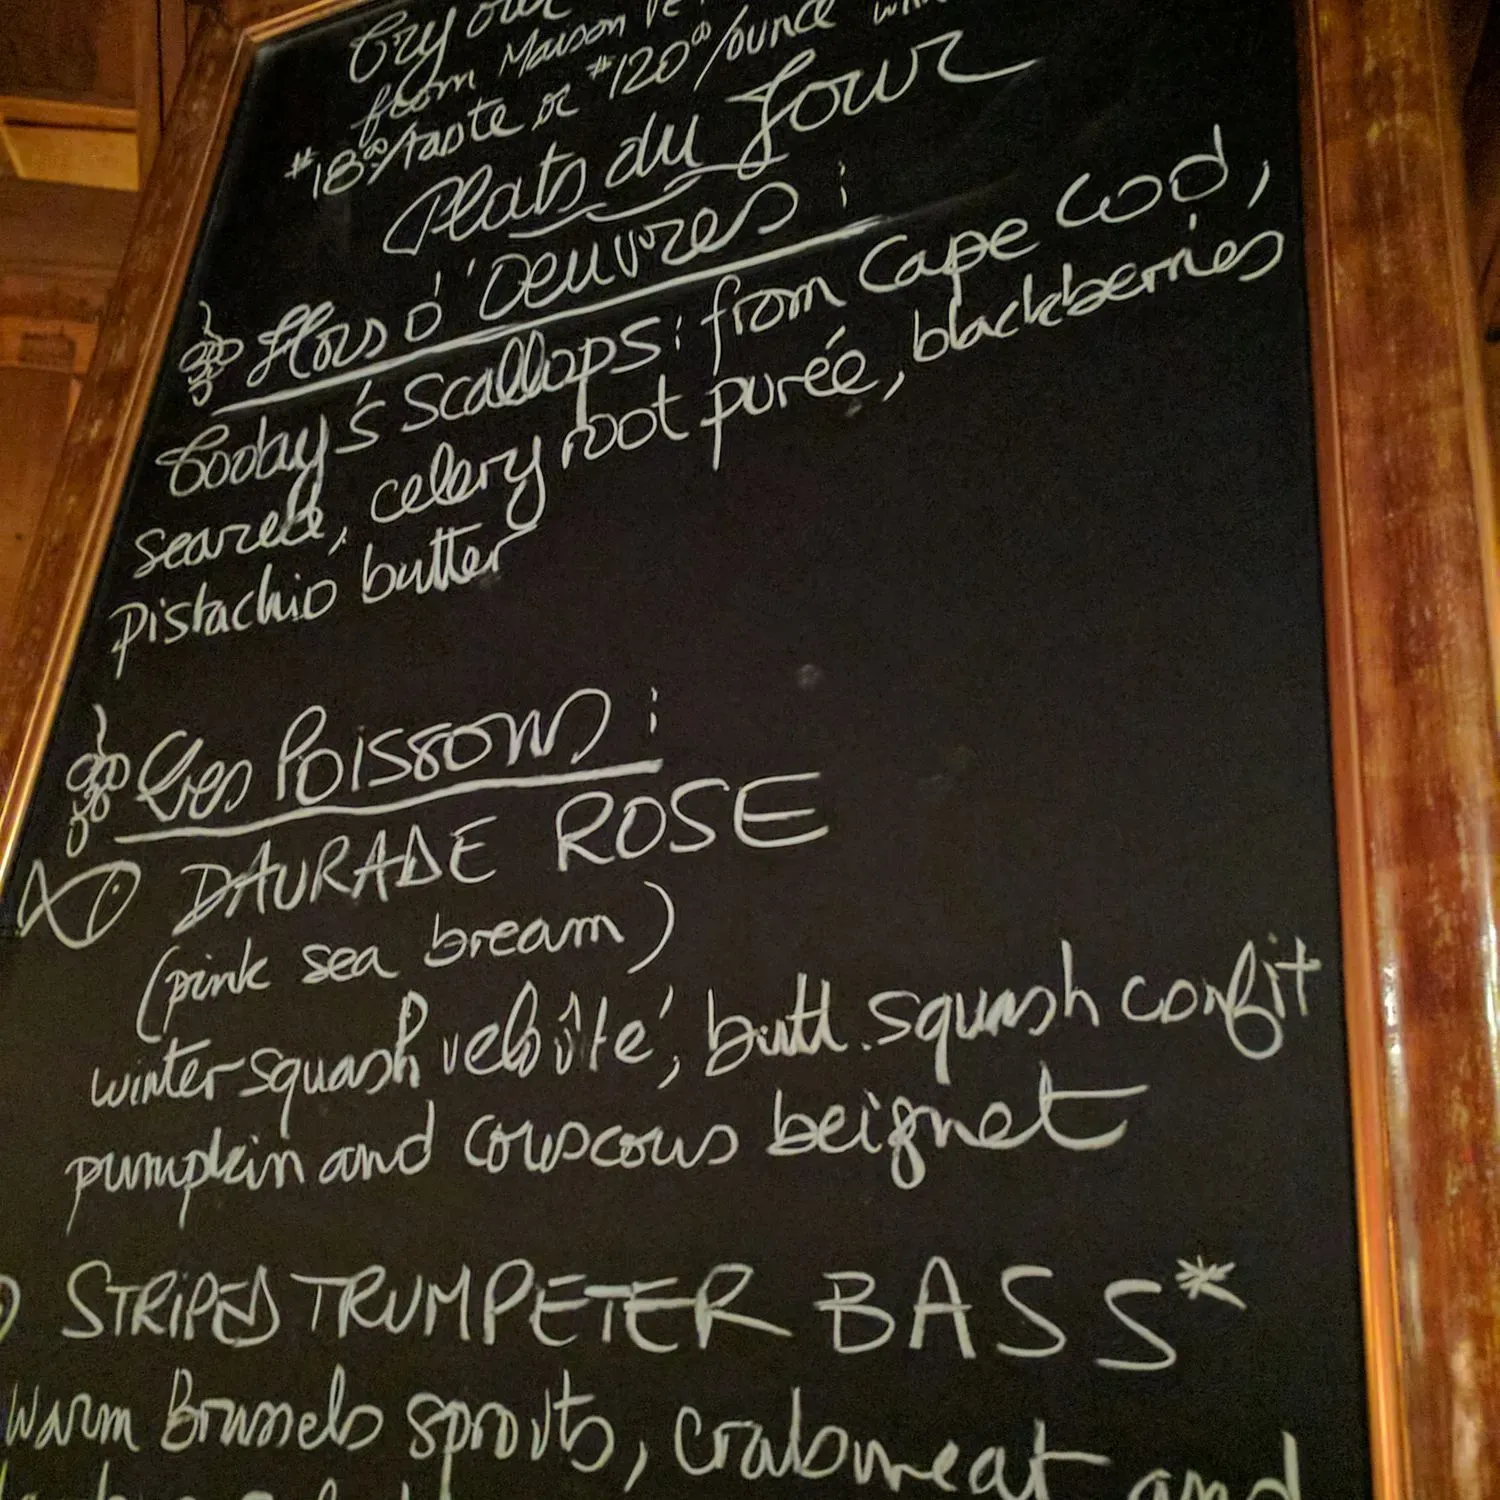 Try our
from Maison
$18.00/taste or $120.00/ounce
Plats du Jour
Hors d'oeuvres:
Today's Scallops: from Cape Cod,
seared, celery root purée, blackberries
pistachio butter
Les Poissons:
DAURADE ROSE
(pink sea bream)
winter squash velouté, butt. squash confit
pumpkin and couscous beignet
STRIPED TRUMPETER BASS*
Warm Brussels sprouts, crabmeat and